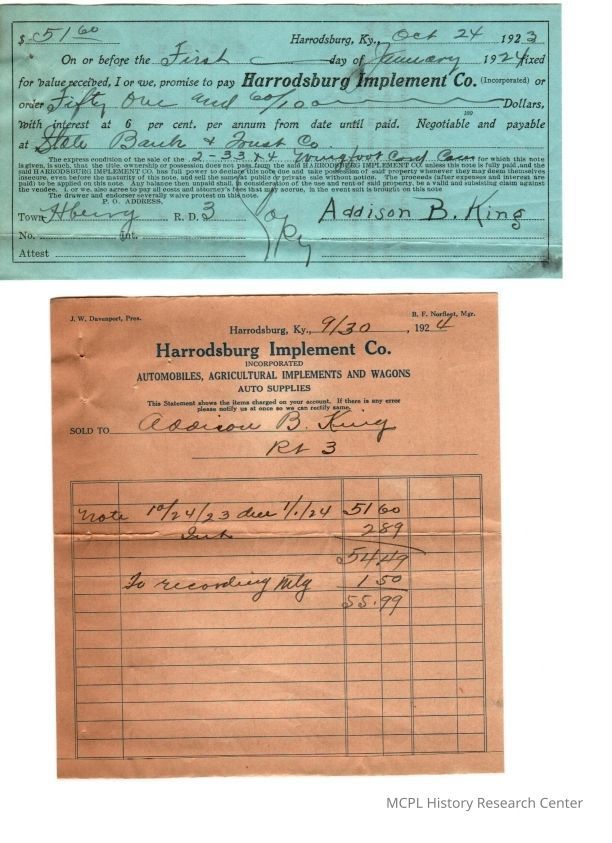 $ 51 60 Harrodsburg, Ky., Oct 24 1923
On or before the First day of January 1924 fixed
for value received, I or we, promise to pay Harrodsburg Implement Co. (Incorporated) or
order Fifty One and 60/100 Dollars,
with interest at 6 per cent. per annum from date until paid. Negotiable and payable
at State Bank & Trust Co
The express condition of the sale of the 2-33x4 Cord for which this note
is given, is such, that the title, ownership or possession does not pass from the said HARRODSBURG IMPLEMENT CO. unless this note is fully paid, and the
said HARRODSBURG IMPLEMENT CO. has full power to declare this note due and take possession of said property whenever they may deem themselves
insecure, even before the maturity of this note, and sell the same at public or private sale without notice. The proceeds (after expenses and interest are
paid) to be applied on this note. Any balance then unpaid shall, in consideration of the use and rent of said property, be a valid and subsisting claim against
the vendee, I, or we, also agree to pay all costs and attorney's fees that may accrue, in the event suit is brought on this note.
The drawer and endorser severally waive protest on this note.
P. O. ADDRESS,
Town R. D. 3 Ky Addison B. King
No. Int.
Attest
J. W. Davenport, Pres. B. F. Norfleet, Mgr.
Harrodsburg, Ky., 9/30, 1924
Harrodsburg Implement Co.
INCORPORATED
AUTOMOBILES, AGRICULTURAL IMPLEMENTS AND WAGONS
AUTO SUPPLIES
This Statement shows the items charged on your account. If there is any error
please notify us at once so we can rectify same.
SOLD TO Addison B. King
Rt 3
Note 10/24/23 due 1/1/24 51 60
Int 2 89
54 49
To recording Mtg 1 50
55.99
MCPL History Research Center